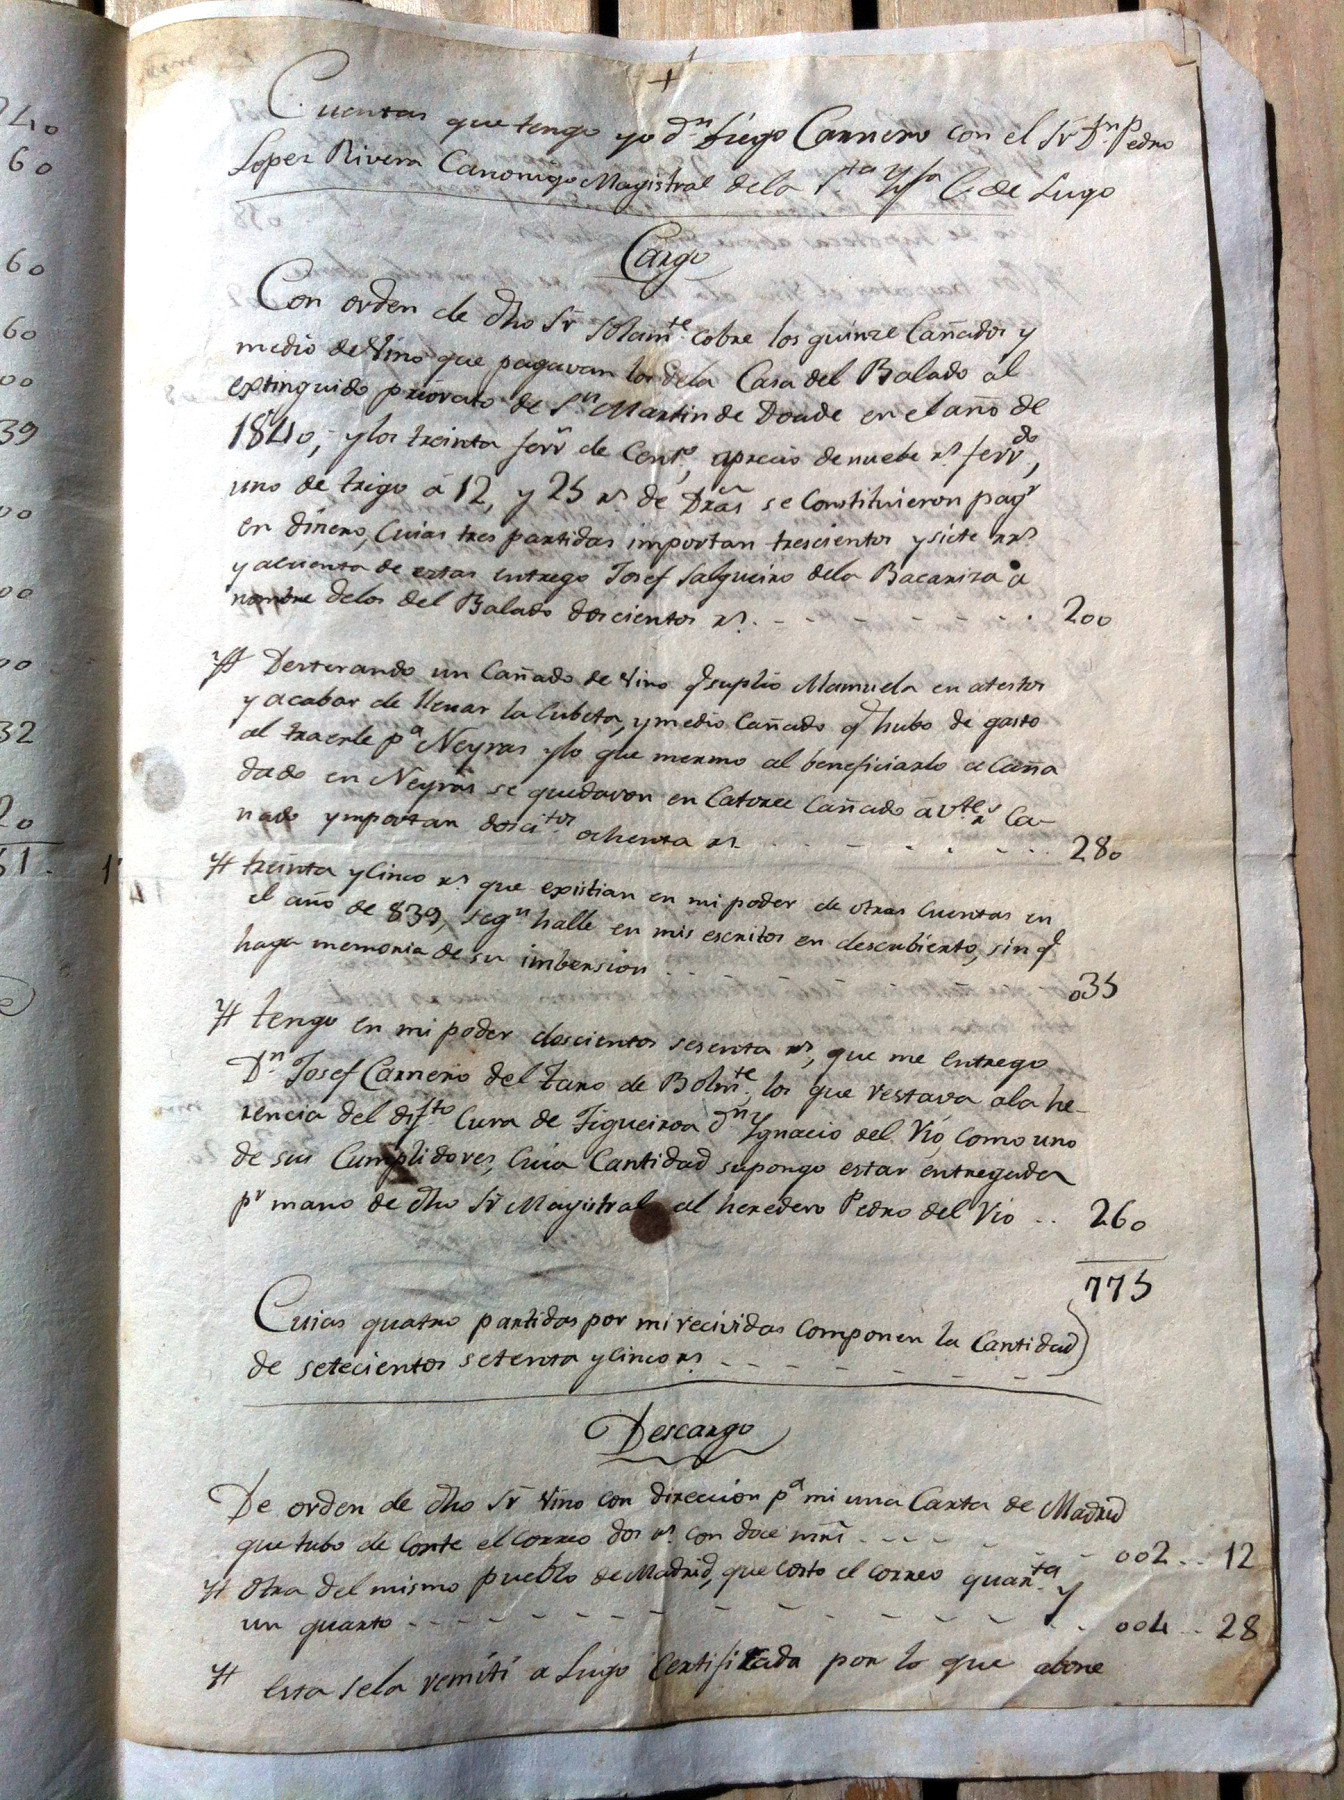 +
Cuentas que tengo yo Dn Diego Carnero con el Sr Dn Pedro
Lopez Rivera Canonigo Magistral dela Sta Ygla C. de Lugo
Cargo
Con orden de dho Sr solamte cobre los quinze Cañados y
medio de Vino que pagavan los dela Casa del Balado al
extinguido priorato de Sn Martin de Doade en el año de
1840, y los treinta ferrs de Centº, aprecio de nuebe rs ferrdo,
uno de trigo á 12, y 25 rs de Dras se Constituieron pagr
en dinero, Cuias tres partidas importan trescientos y siete rrs
y acuenta de estas entrego Josef Salgueiro dela Bacariza a
nombre delos del Balado doscientos rs. 200
Yt Desterando un Cañado de Vino q suplio Manuela en atestos
y acabar de llenar la Cubeta, y medio Cañado q hubo de gasto
al traerle pa Neyras y lo que mermo al beneficiarlo a Caña
dado en Neyras se quedaron en Catorce Cañado á vte rs Ca-
nado ymportan doscitos ochenta rs 280
Yt treinta y Cinco rs que existian en mi poder de otras Cuentas en
el año de 839, segn halle en mis escritos en descubierto, sin q
haga memoria de su imbersion 035
Yt tengo en mi poder doscientos sesenta rs, que me entrego
Dn Josef Carnero del Taro de Bolmte, los que restava ala he-
rencia del difto Cura de Figueiroa Dn Ygnacio del Vio, como uno
de sus Cumplidores, Cuia Cantidad supongo estar entregada
pr mano de dho Sr Magistral al heredero Pedro del Vio .. 260
775
Cuias quatro partidas por mi recividas Componen la Cantidad
de setecientos setenta y cinco rs
Descargo
De orden de dho Sr Vino con direccion pa mi una Carta de Madrid
que tubo de Conte el correo dos rs con doce mrs 002.. 12
Yt Otra del mismo pueblo de Madrid, que costo el correo quarta y
un quarto 004.. 28
Yt esta sela remiti a Lugo Certificada por lo que abone
240
60
60
60
00
39
00
00
00
32
20
51. 1